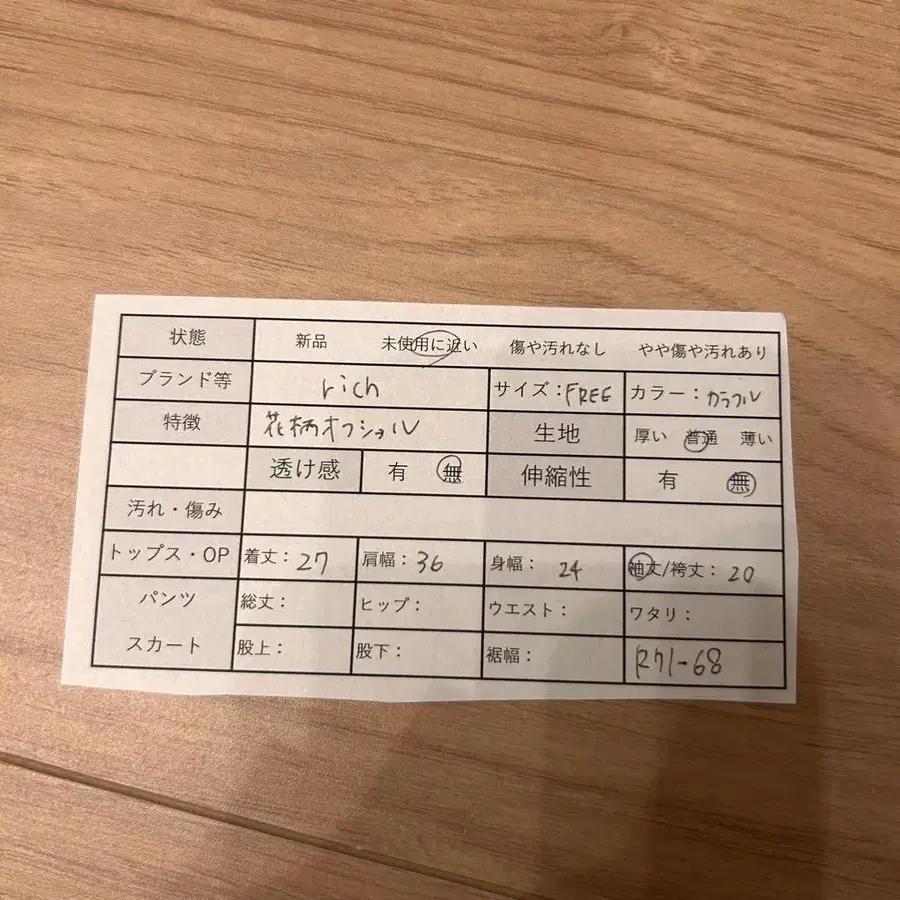 状態 新品 未使用に近い 傷や汚れなし やや傷や汚れあり
ブランド等 rich サイズ：FREE カラー：カラフル
特徴 花柄オフショル 生地 厚い 普通 薄い
透け感 有 無 伸縮性 有 無
汚れ・傷み
トップス・OP 着丈：27 肩幅：36 身幅：24 袖丈/袴丈：20
パンツ 総丈： ヒップ： ウエスト： ワタリ：
スカート 股上： 股下： 裾幅： R71-68